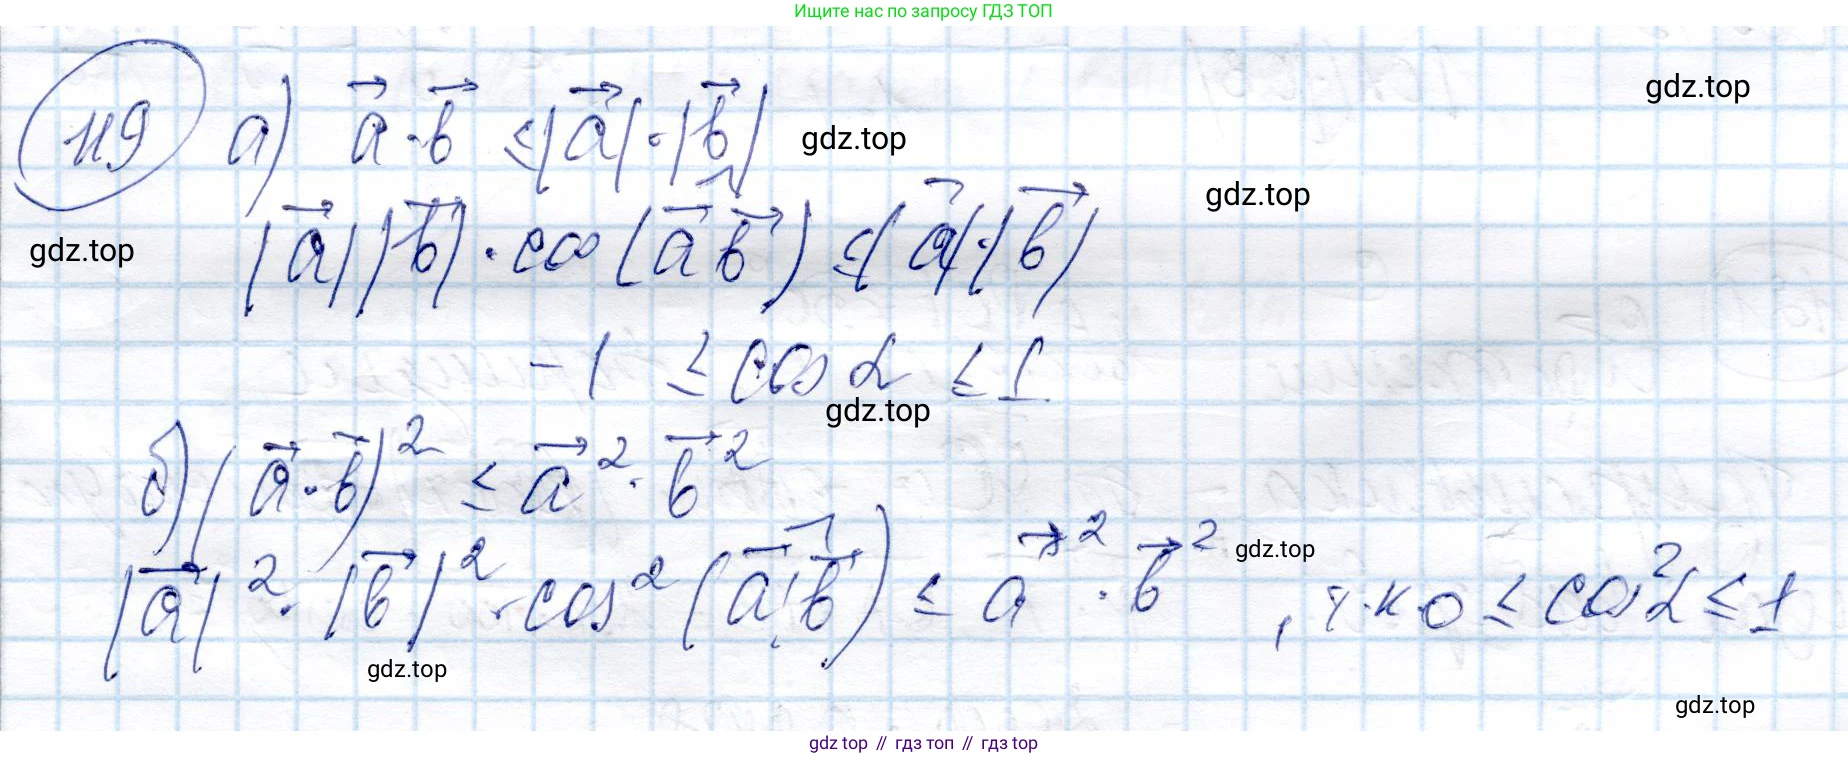 Ищите нас по запросу ГДЗ ТОП
119 а) a⃗ · b⃗ ≤ |a⃗| · |b⃗|
gdz.top
gdz.top
gdz.top
gdz.top
|a⃗| |b⃗| · cos (a⃗ b⃗) ≤ |a⃗| · |b⃗|
-1 ≤ cos α ≤ 1
gdz.top
б) (a⃗ · b⃗)² ≤ a⃗² · b⃗²
|a⃗|² · |b⃗|² · cos² (a⃗, b⃗) ≤ a⃗² · b⃗², т.к. 0 ≤ cos²α ≤ 1
gdz.top
gdz.top
gdz.top
gdz top // гдз топ // гдз top